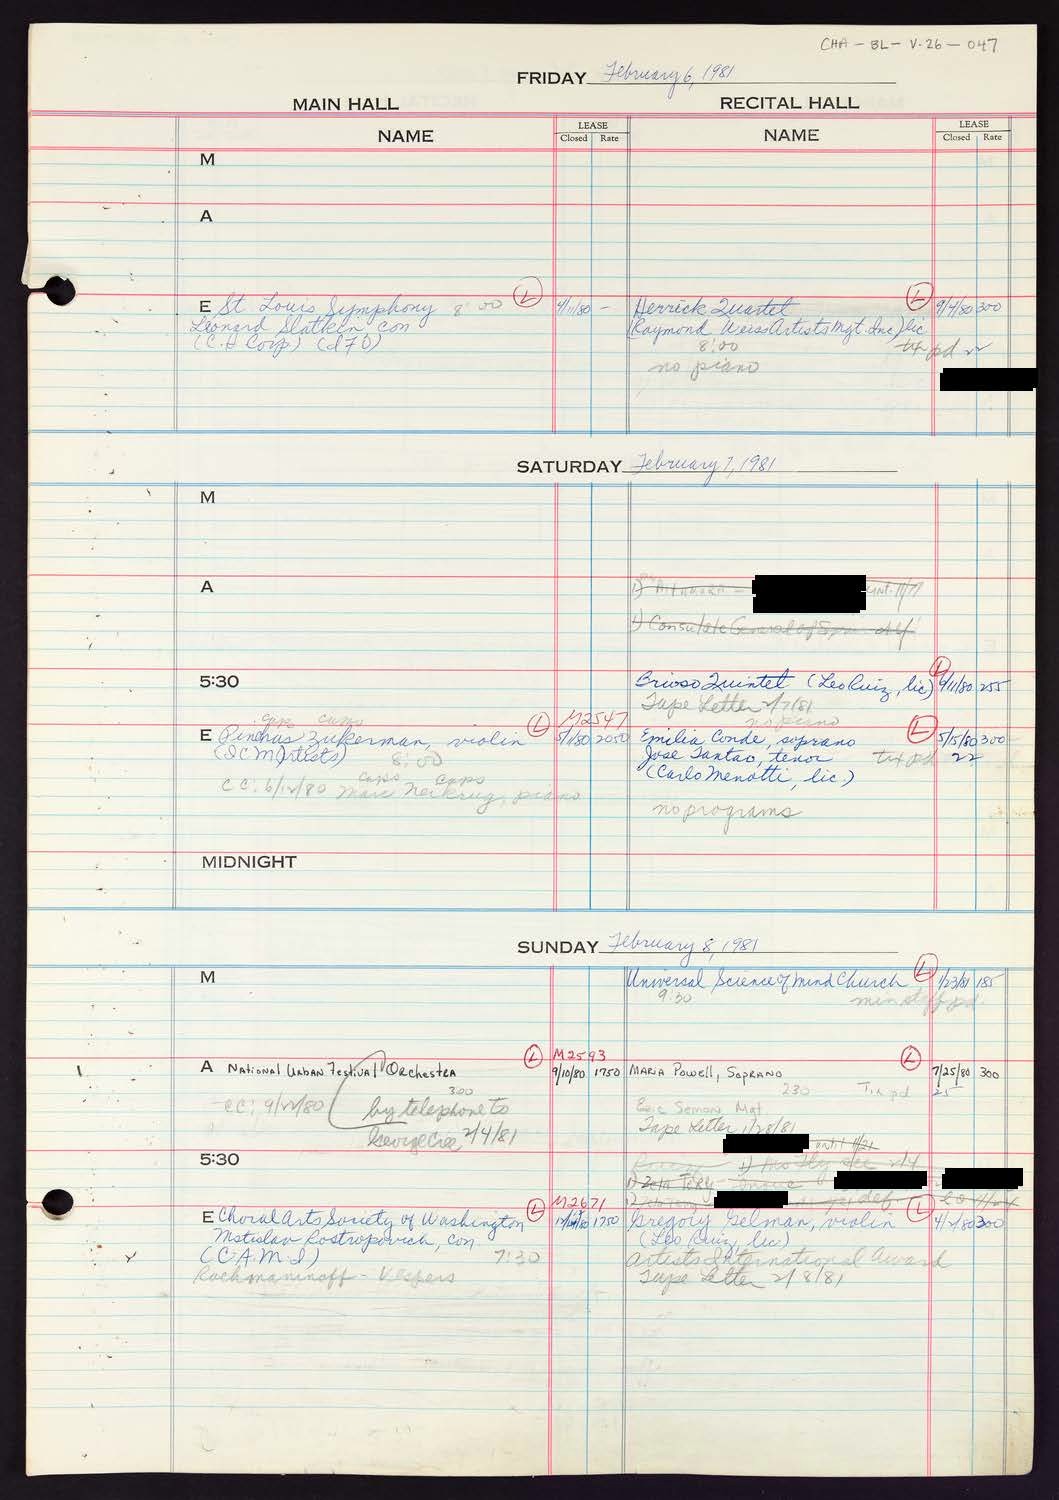 CHA - BL - V.26 - 047
FRIDAY February 6, 1981
MAIN HALL
RECITAL HALL
NAME
LEASE
Closed Rate
NAME
LEASE
Closed Rate
M
A
E St. Louis Symphony 8:00 L 9/11/80 -
Leonard Slatkin con
(C.H Corp) (1470)
Herrick Quartet L 9/4/80 300
(Raymond Weiss Artists Mgt. Inc) lic
8:00 tix pd 22
no piano
SATURDAY February 7, 1981
M
A
1) until 11/7
1) Consulate General of def
5:30
Brioso Quintet (Leo Ruiz, lic) L 9/11/80 255
Tape Letter 2/7/81
no piano
caps caps L M2547
E Pinchas Zukerman, violin 5/1/80 2050
(ICM Artists) 8:00
caps caps
CC: 6/12/80 Marc Neikrug, piano
Emilia Conde, soprano L 5/5/80 300
Jose Tantao, tenor tix pd 22
(Carlo Menotti, lic.)
no programs
MIDNIGHT
SUNDAY February 8, 1981
M
Universal Science of Mind Church L 1/23/81 185
9:30 min staff pd.
L M2593
A National Urban Festival Orchestra 9/10/80 1750
300
CC: 9/22/80 by telephone to
George Cree 2/4/81
L
Maria Powell, Soprano 7/25/80 300
230 Tix pd 25
Eric Semon Mgt
Tape Letter 1/28/81
until 11/21
5:30
1) Mostly 2/4
1) Zeta
2) def.
L M2671
E Choral Arts Society of Washington 1750
Mstislav Rostropovich, con.
(C.A.M.I) 7:30
Rachmaninoff - Vespers
Gregory Gelman, violin L 4/2/80 300
(Leo Ruiz, lic)
Artists International Award
Tape Letter 2/8/81